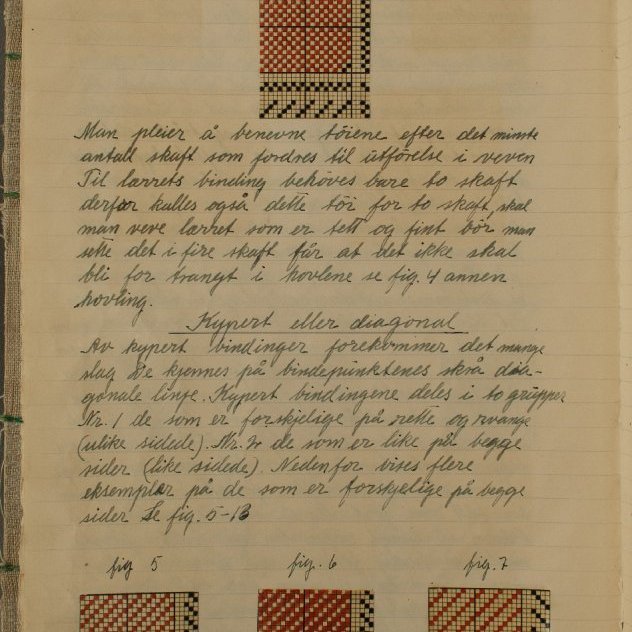 Man pleier å benevne töiene efter det minste
antall skaft som fordres til utförelse i veven
Til lærrets binding behöves bare to skaft
derfor kalles også dette töi for to skaft, skal
man veve lærret som er tett og fint bör man
sette det i fire skaft får at det ikke skal
bli for trangt i hovlene se fig. 4 annen
hovling.
Kypert eller diagonal
Av kypert bindinger forekommer det mange
slag De kjennes på bindepunktenes skrå dia-
gonale linje. Kypert bindingene deles i to grupper
Nr. 1 de som er forskjelige på rette og vrange
(ulike sidede). Nr. 2 de som er like på begge
sider (like sidede). Nedenfor vises flere
eksempler på de som er forskjelige på begge
sider Se fig. 5-13
fig 5 fig. 6 fig. 7